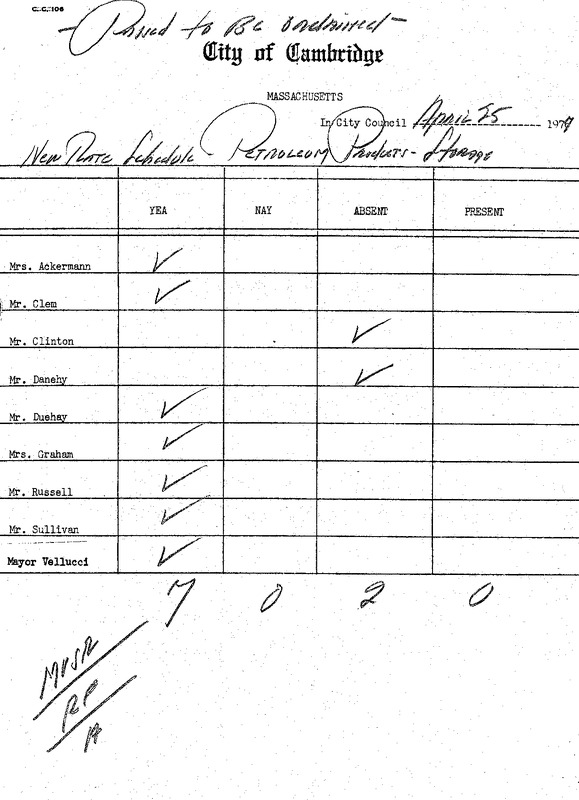 C.C.-106
Passed to Be ordained
City of Cambridge
MASSACHUSETTS
In City Council April 25 1977
New Rate Schedule - Petroleum Products - Storage
YEA NAY ABSENT PRESENT
Mrs. Ackermann ✓
Mr. Clem ✓
Mr. Clinton ✓
Mr. Danehy ✓
Mr. Duehay ✓
Mrs. Graham ✓
Mr. Russell ✓
Mr. Sullivan ✓
Mayor Vellucci ✓
7 0 2 0